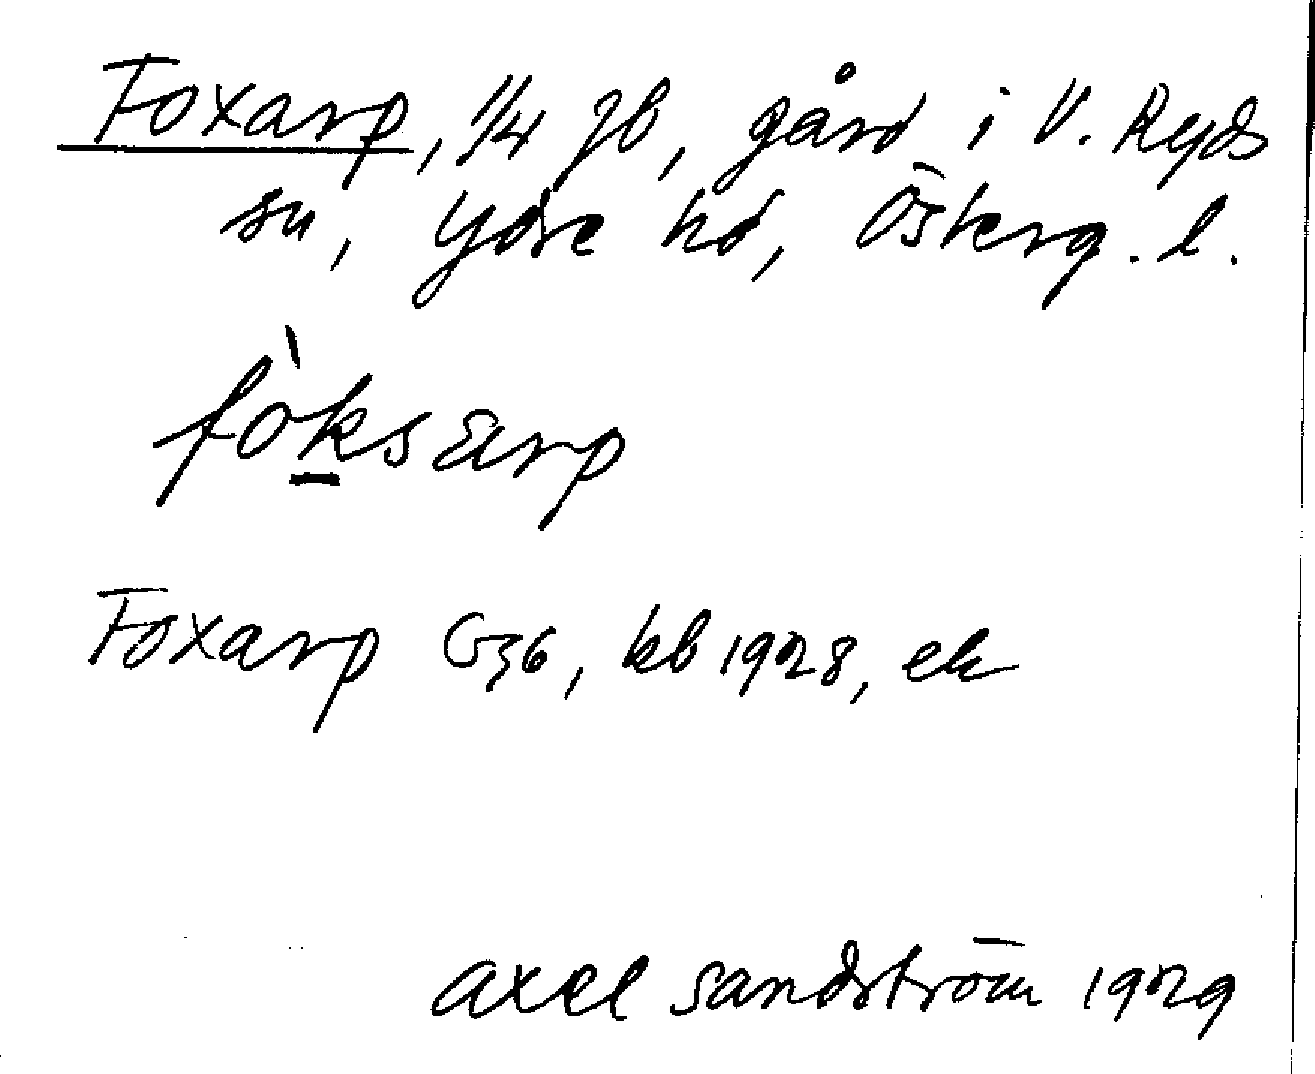 Foxarp, 1/4 jb, gård i V. Ryds
sn, Ydre hd, Österg. l.
fòksarp
Foxarp G36, kb 1928, ek
Axel Sandström 1929